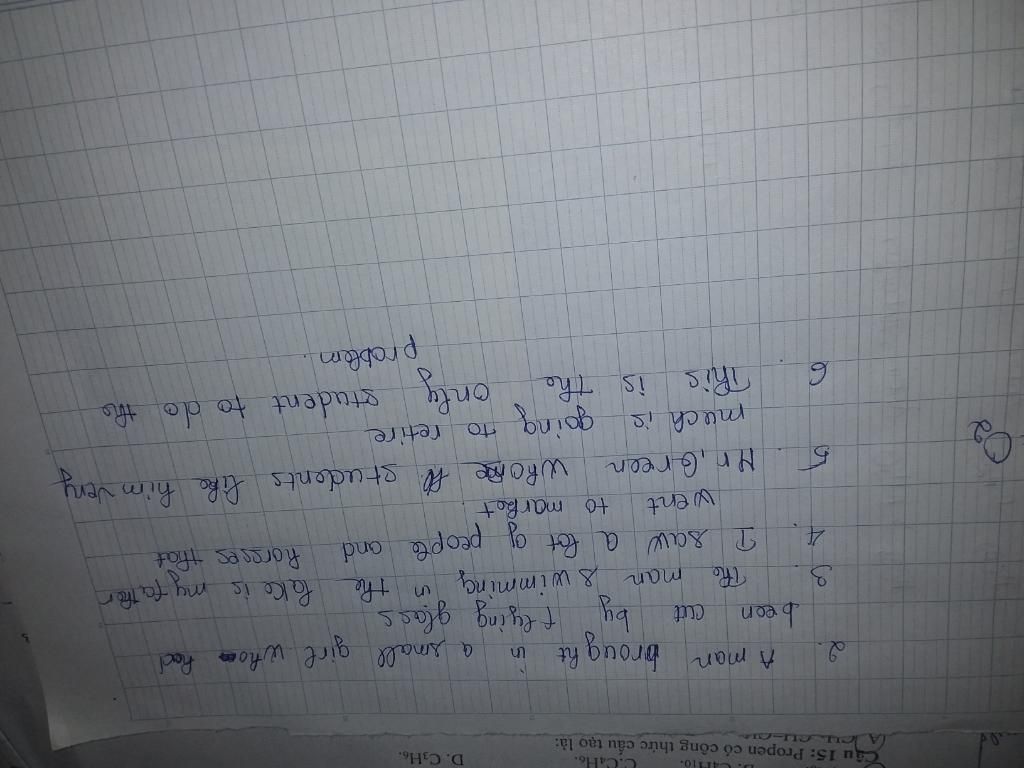 D. C₃H₆.
Câu 15: Propen có công thức cấu tạo là:
2. A man brought in a small girl who had
been cut by flying glass
3. The man swimming in the lake is my father
4. I saw a lot of people and horses that
went to market.
5. Mr, Green whose students like him very
much is going to retire
6. This is the only student to do the
problem.
2